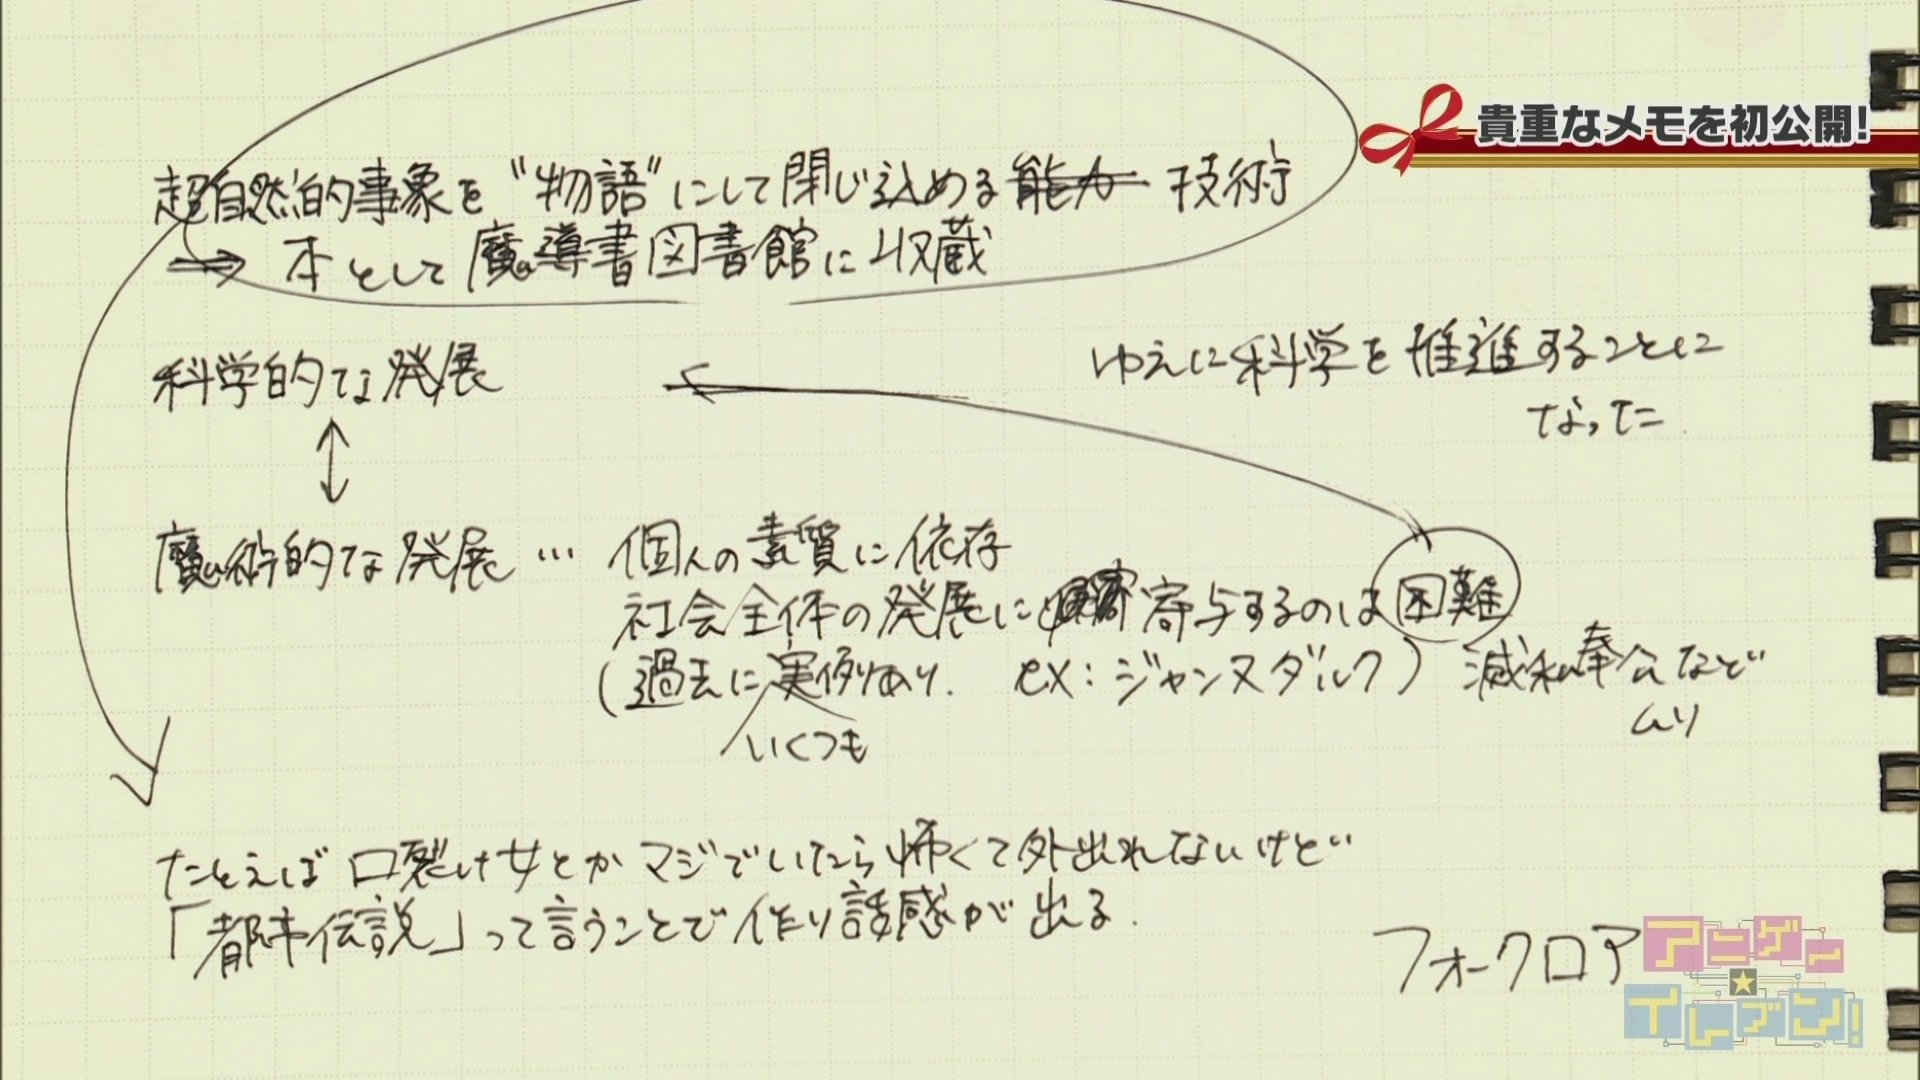 貴重なメモを初公開!
超自然的事象を“物語”にして閉じ込める能力 技術
⇒ 本として魔導書図書館に収蔵
科学的な発展
ゆえに科学を推進することに
なった
魔術的な発展… 個人の素質に依存
社会全体の発展に 寄与するのは困難
(過去に実例あり. ex:ジャンヌダルク) 滅私奉公など
ムリ
いくつも
たとえば口裂け女とかマジでいたら怖くて外出れないけど…
「都市伝説」って言うことで作り話感が出る.
フォークロア
アニゲー
★
イレブン!